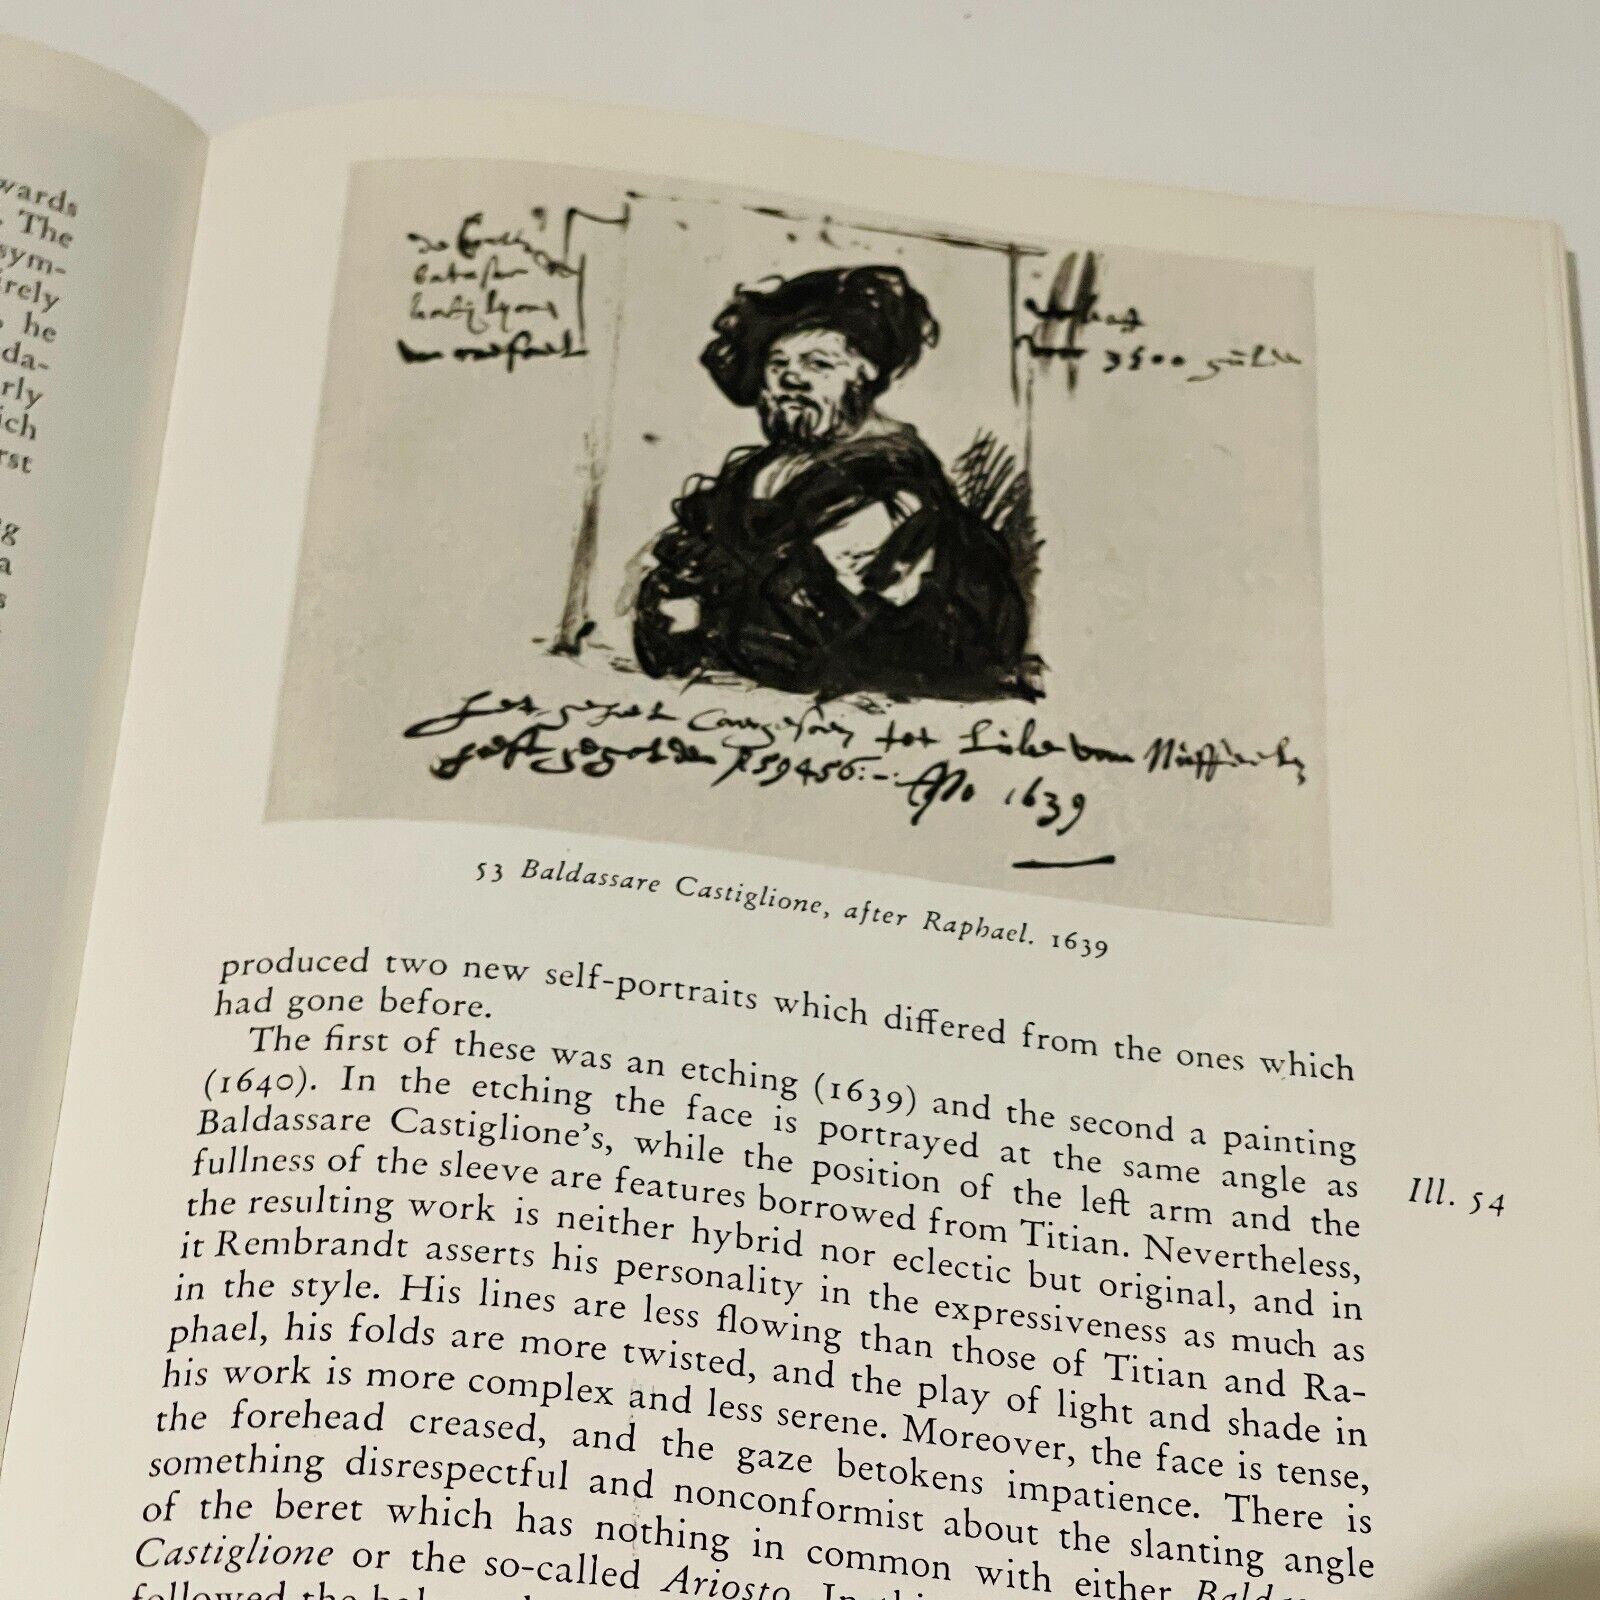 wards
. The
sym-
irely
he
da-
rly
ich
rst
g
a
s
batasar
van raefael
3500 gulde
het geheel tot Luke van Nuffeelen
heeft gegolden f 59456:-: Ano 1639
53 Baldassare Castiglione, after Raphael. 1639
produced two new self-portraits which differed from the ones which
had gone before.
The first of these was an etching (1639) and the second a painting
(1640). In the etching the face is portrayed at the same angle as
Baldassare Castiglione's, while the position of the left arm and the
Ill. 54
fullness of the sleeve are features borrowed from Titian. Nevertheless,
the resulting work is neither hybrid nor eclectic but original, and in
it Rembrandt asserts his personality in the expressiveness as much as
in the style. His lines are less flowing than those of Titian and Ra-
phael, his folds are more twisted, and the play of light and shade in
his work is more complex and less serene. Moreover, the face is tense,
the forehead creased, and the gaze betokens impatience. There is
something disrespectful and nonconformist about the slanting angle
of the beret which has nothing in common with either Balda
Castiglione or the so-called Ariosto. In this
followed the